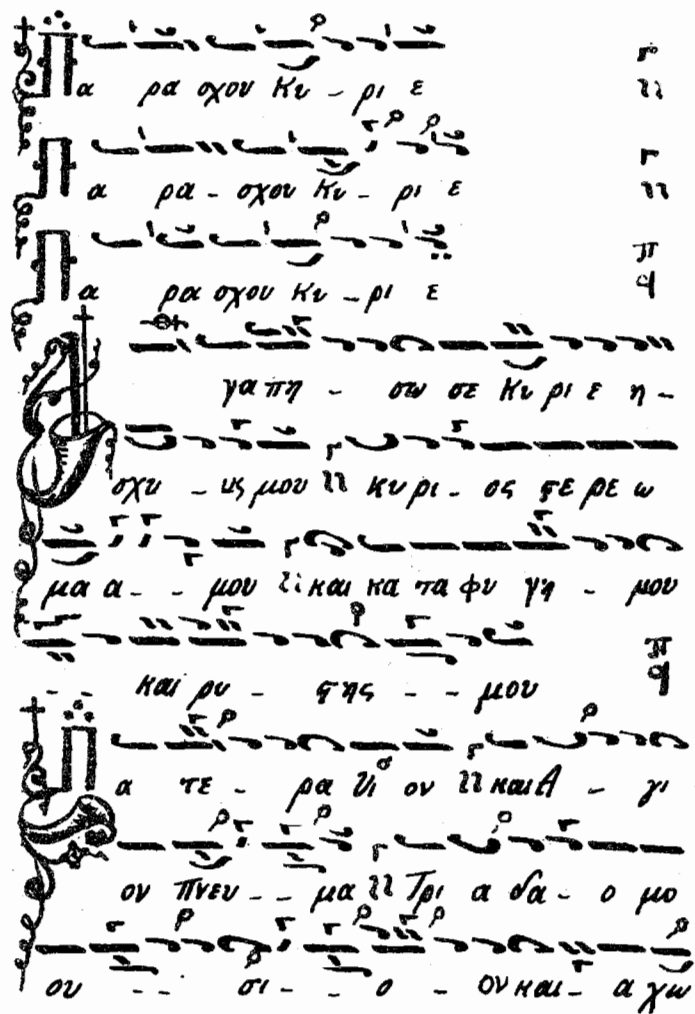 Πα ρα σχου Κυ - ρι ε
Πα ρα - σχου Κυ - ρι ε
Πα ρα σχου Κυ - ρι ε
γα πη - σω σε Κυ ρι ε η -
σχυ - ις μου κυ ρι - ος στε ρε ω
μα α - - μου και κα τα φυ γη - μου
και ρυ - στης - - μου
Πα τε - ρα Υι ον και Α - γι
ον Πνευ - - μα Τρι α δα - ο μο
ου - - σι - - ο - ον και - α χω